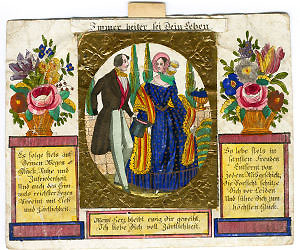 Immer heiter sei Dein Leben
Es folge stets auf
Deinen Wegen
Glück, Ruhe und
Zufriedenheit.
Und auch des Him=
mels reichster Segen
Vereint mit Lieb
und Zärtlichkeit.
So lebe stets in
sanften Freuden
Entfernt von
jedem Mißgeschick,
die Vorsicht schütze
Dich vor Leiden
Und führe dich zum
höchsten Glück.
Mein Herz bleibt ewig dir geweiht,
Ich liebe Dich voll Zärtlichkeit.